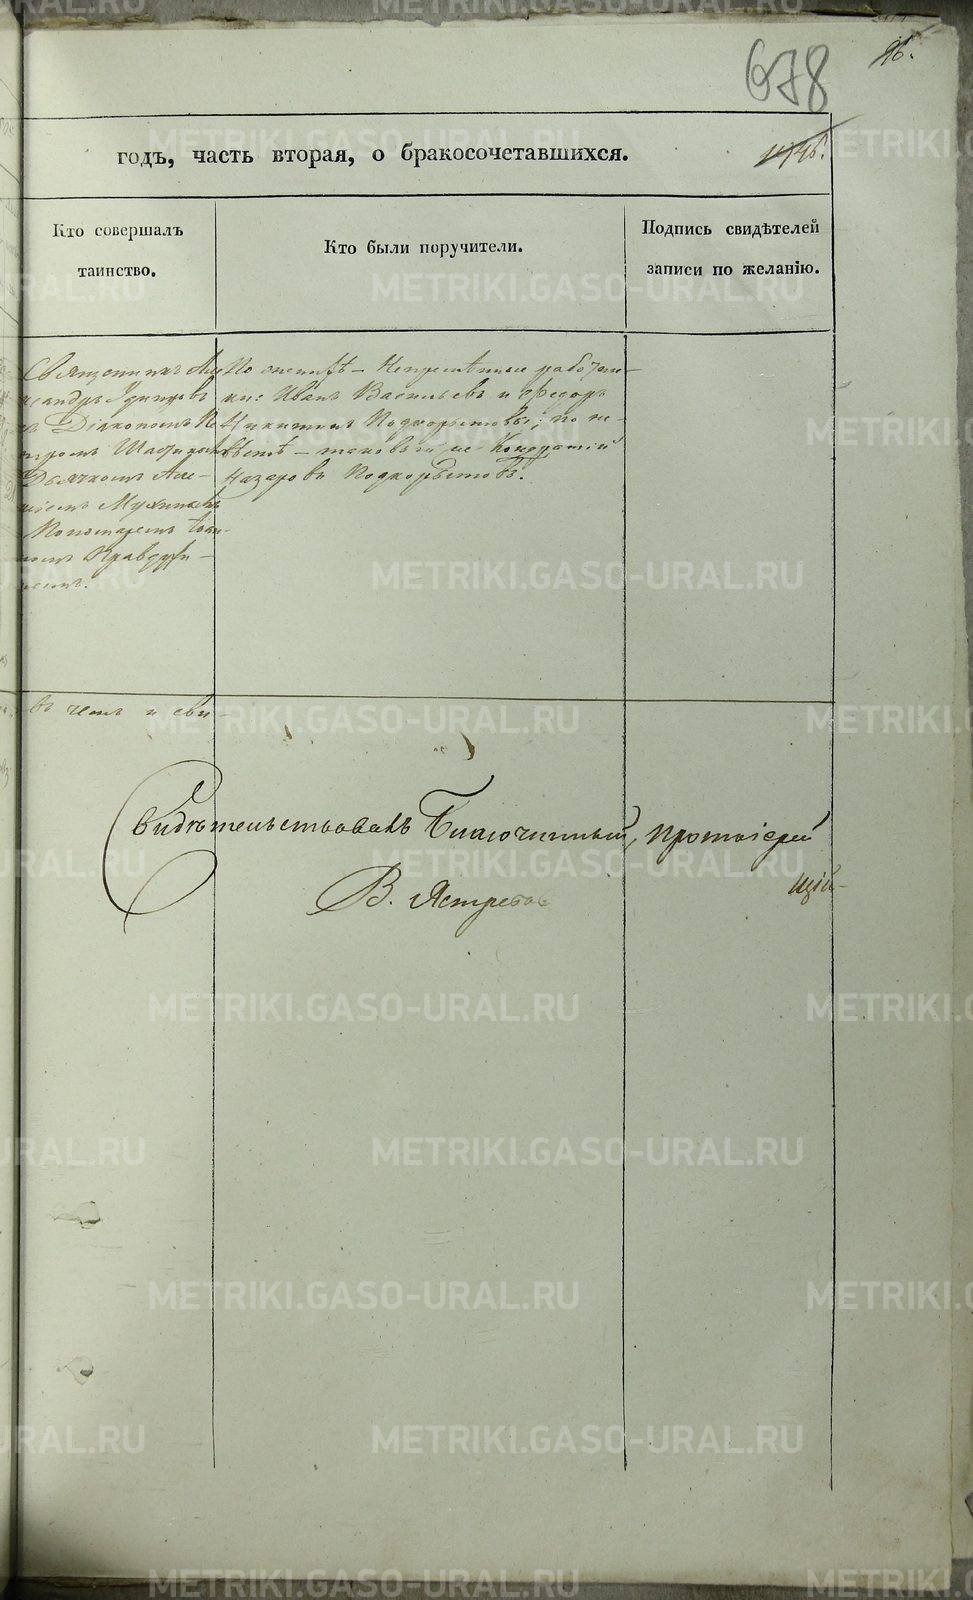 678
96.
годъ, часть вторая, о бракосочетавшихся.
Кто совершалъ
таинство.
Кто были поручители.
Подпись свидѣтелей
записи по желанію.
Священникъ Але
ксандръ Удинцовъ
съ Діакономъ Пе
тромъ
Дьячкомъ Але-
ксіемъ
Пономаремъ Іоан-
номъ Правдух-
нымъ.
По женихѣ – Непремѣнные работни-
ки: Иванъ Васильевъ и Ѳедоръ
Никитинъ Подкорытовы; по не-
вѣстѣ – таковый же Кондратій
Назаровъ Подкорытовъ.
въ чемъ и сви-
Свидѣтельствовалъ Благочинный, Протоіерей
В. Ястребовъ
щій-
METRIKI.GASO-URAL.RU